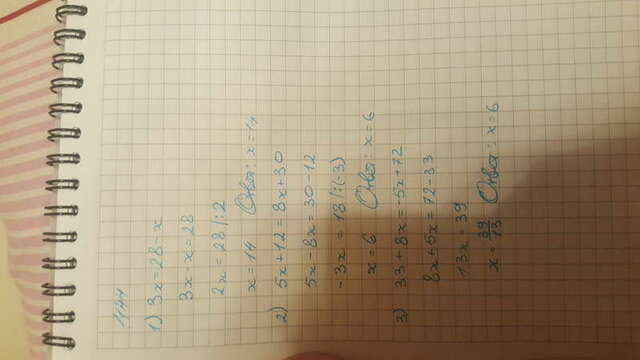 1141
1) 3x = 28 - x
3x - x = 28
2x = 28 |:2
x = 14 Ответ: x = 14
2) 5x + 12 = 8x + 30
5x - 8x = 30 - 12
-3x = 18 |:(-3)
x = 6 Ответ: x = 6
3) 33 + 8x = -5x + 72
8x + 5x = 72 - 33
13x = 39
x = 39/13 Ответ: x = 6